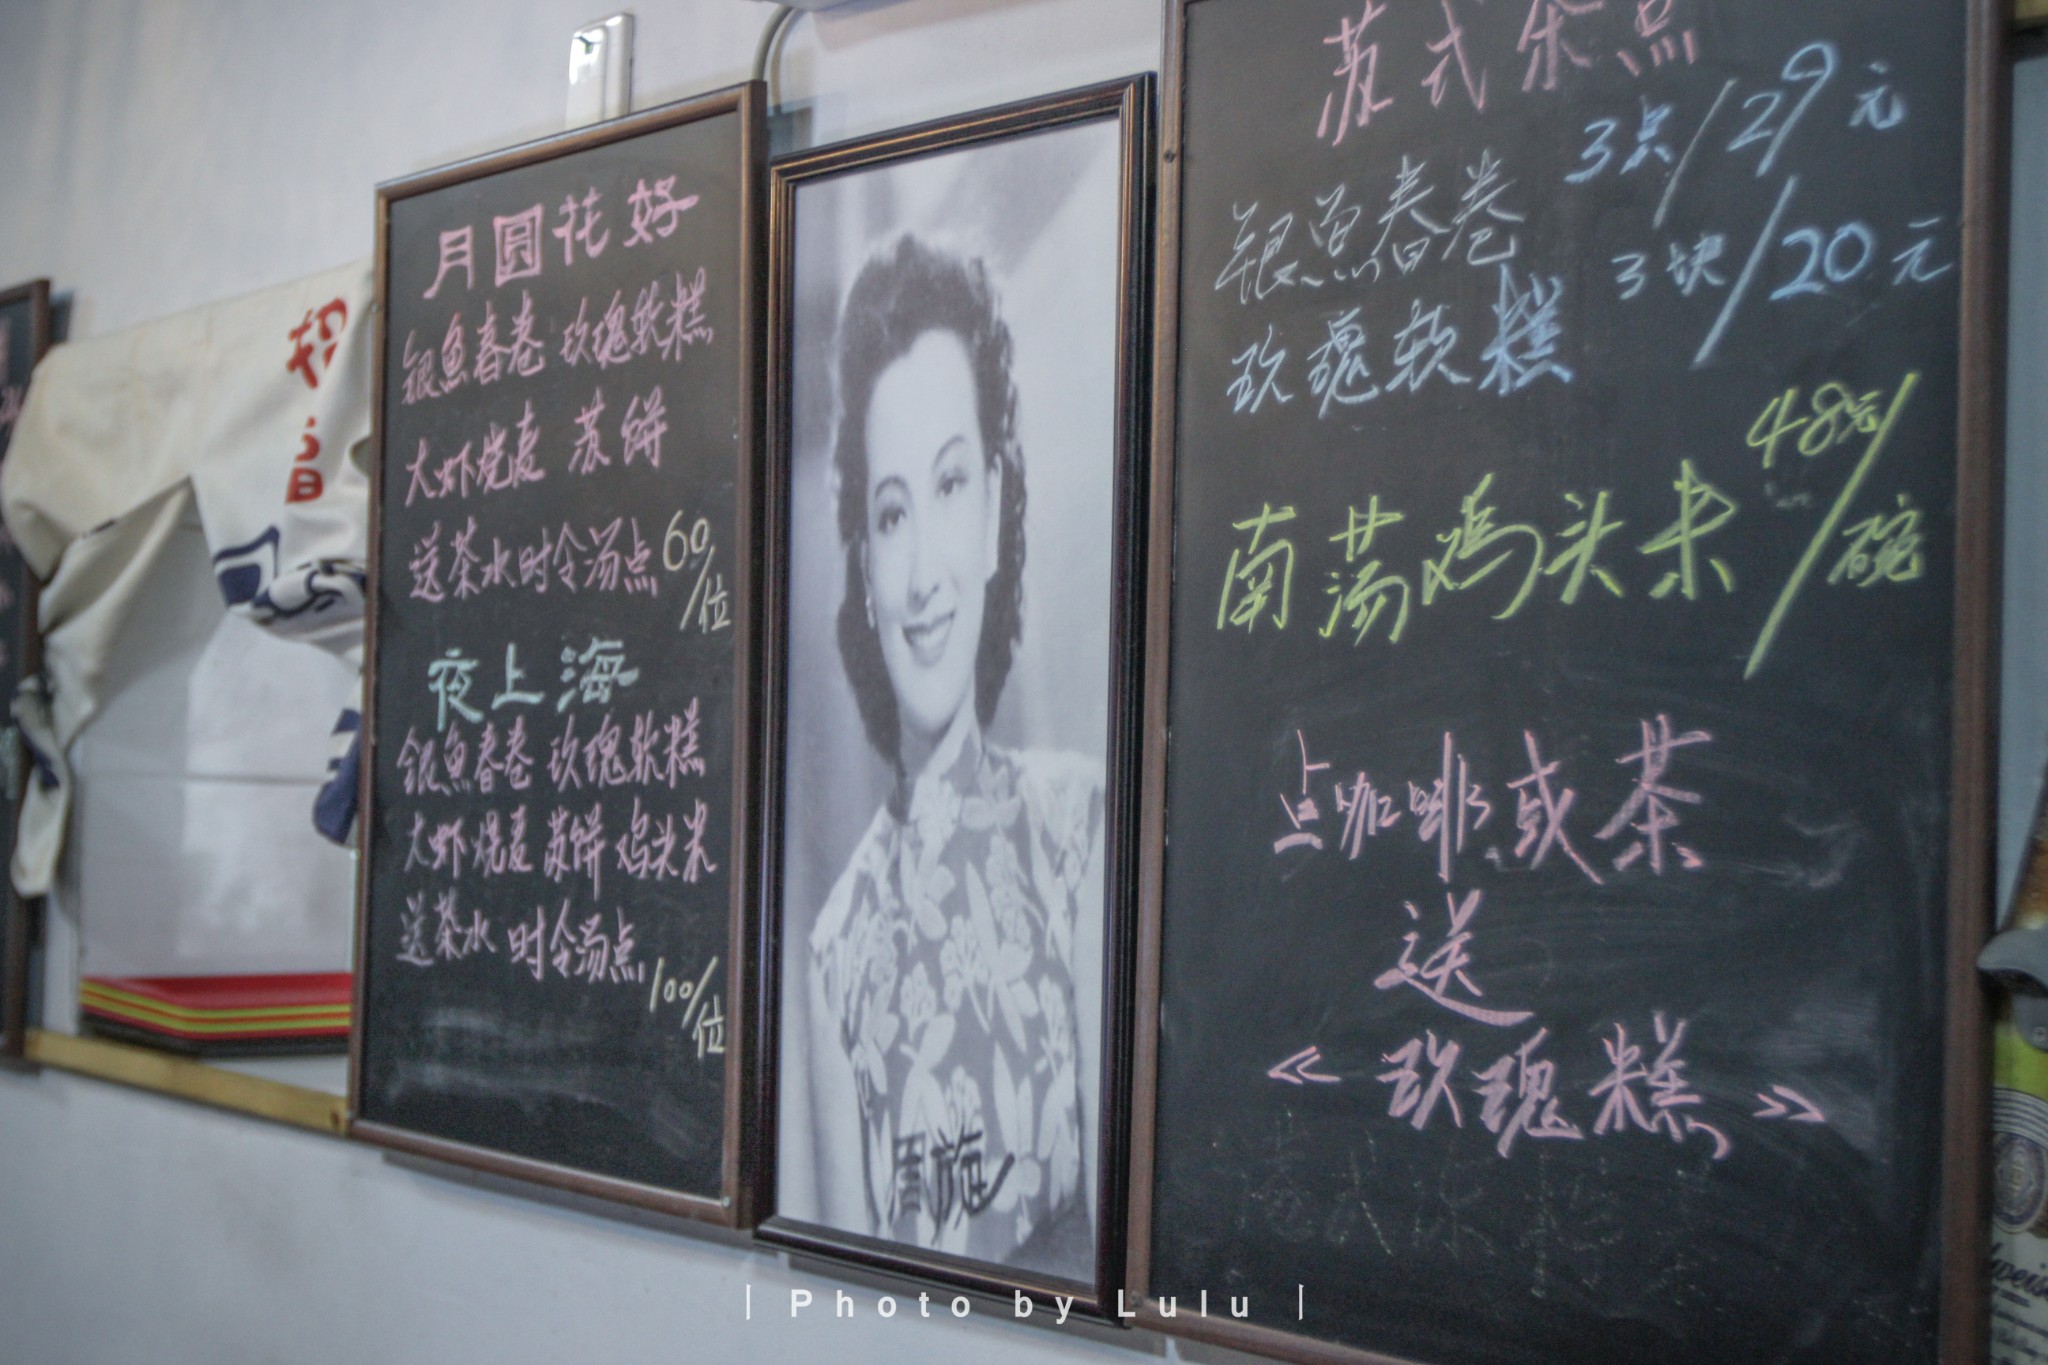 月圆花好
银鱼春卷 玫瑰软糕
大虾烧麦 苏饼
送茶水时令汤点 60/位
夜上海
银鱼春卷 玫瑰软糕
大虾烧麦 苏饼 鸡头米
送茶水 时令汤点
100/位
周旋
苏式茶点
银鱼春卷 3点/29元
玫瑰软糕 3块/20元
南荡鸡头米 48元/碗
点咖啡或茶
送
《玫瑰糕》
| Photo by Lulu |